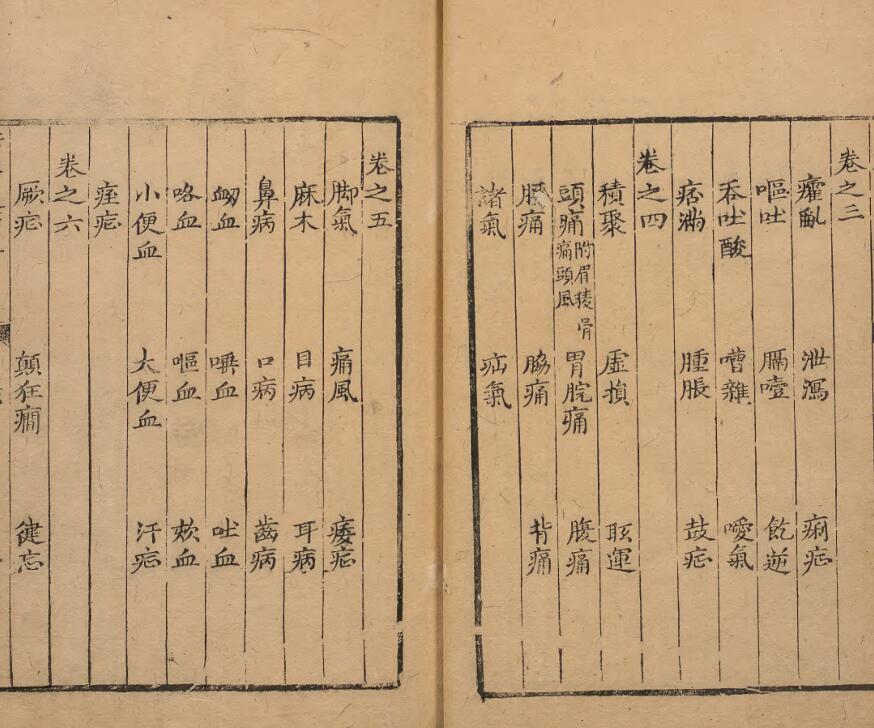 卷之三
癨亂 泄瀉 痢疟
嘔吐 膈噎 飥逆
吞吐酸 嘈雜 噯氣
痞滿 腫脹 鼓疟
卷之四
積聚 虛損 眩運
頭痛 附眉稜骨痛頭風 胃脘痛 腹痛
腰痛 脇痛 背痛
諸氣 疝氣
卷之五
脚氣 痛風 痿疟
麻木 目病 耳病
鼻病 口病 齒病
衂血 唾血 吐血
咯血 嘔血 欬血
小便血 大便血 汗疟
痓疟
卷之六
厥疟 顛狂癇 健忘